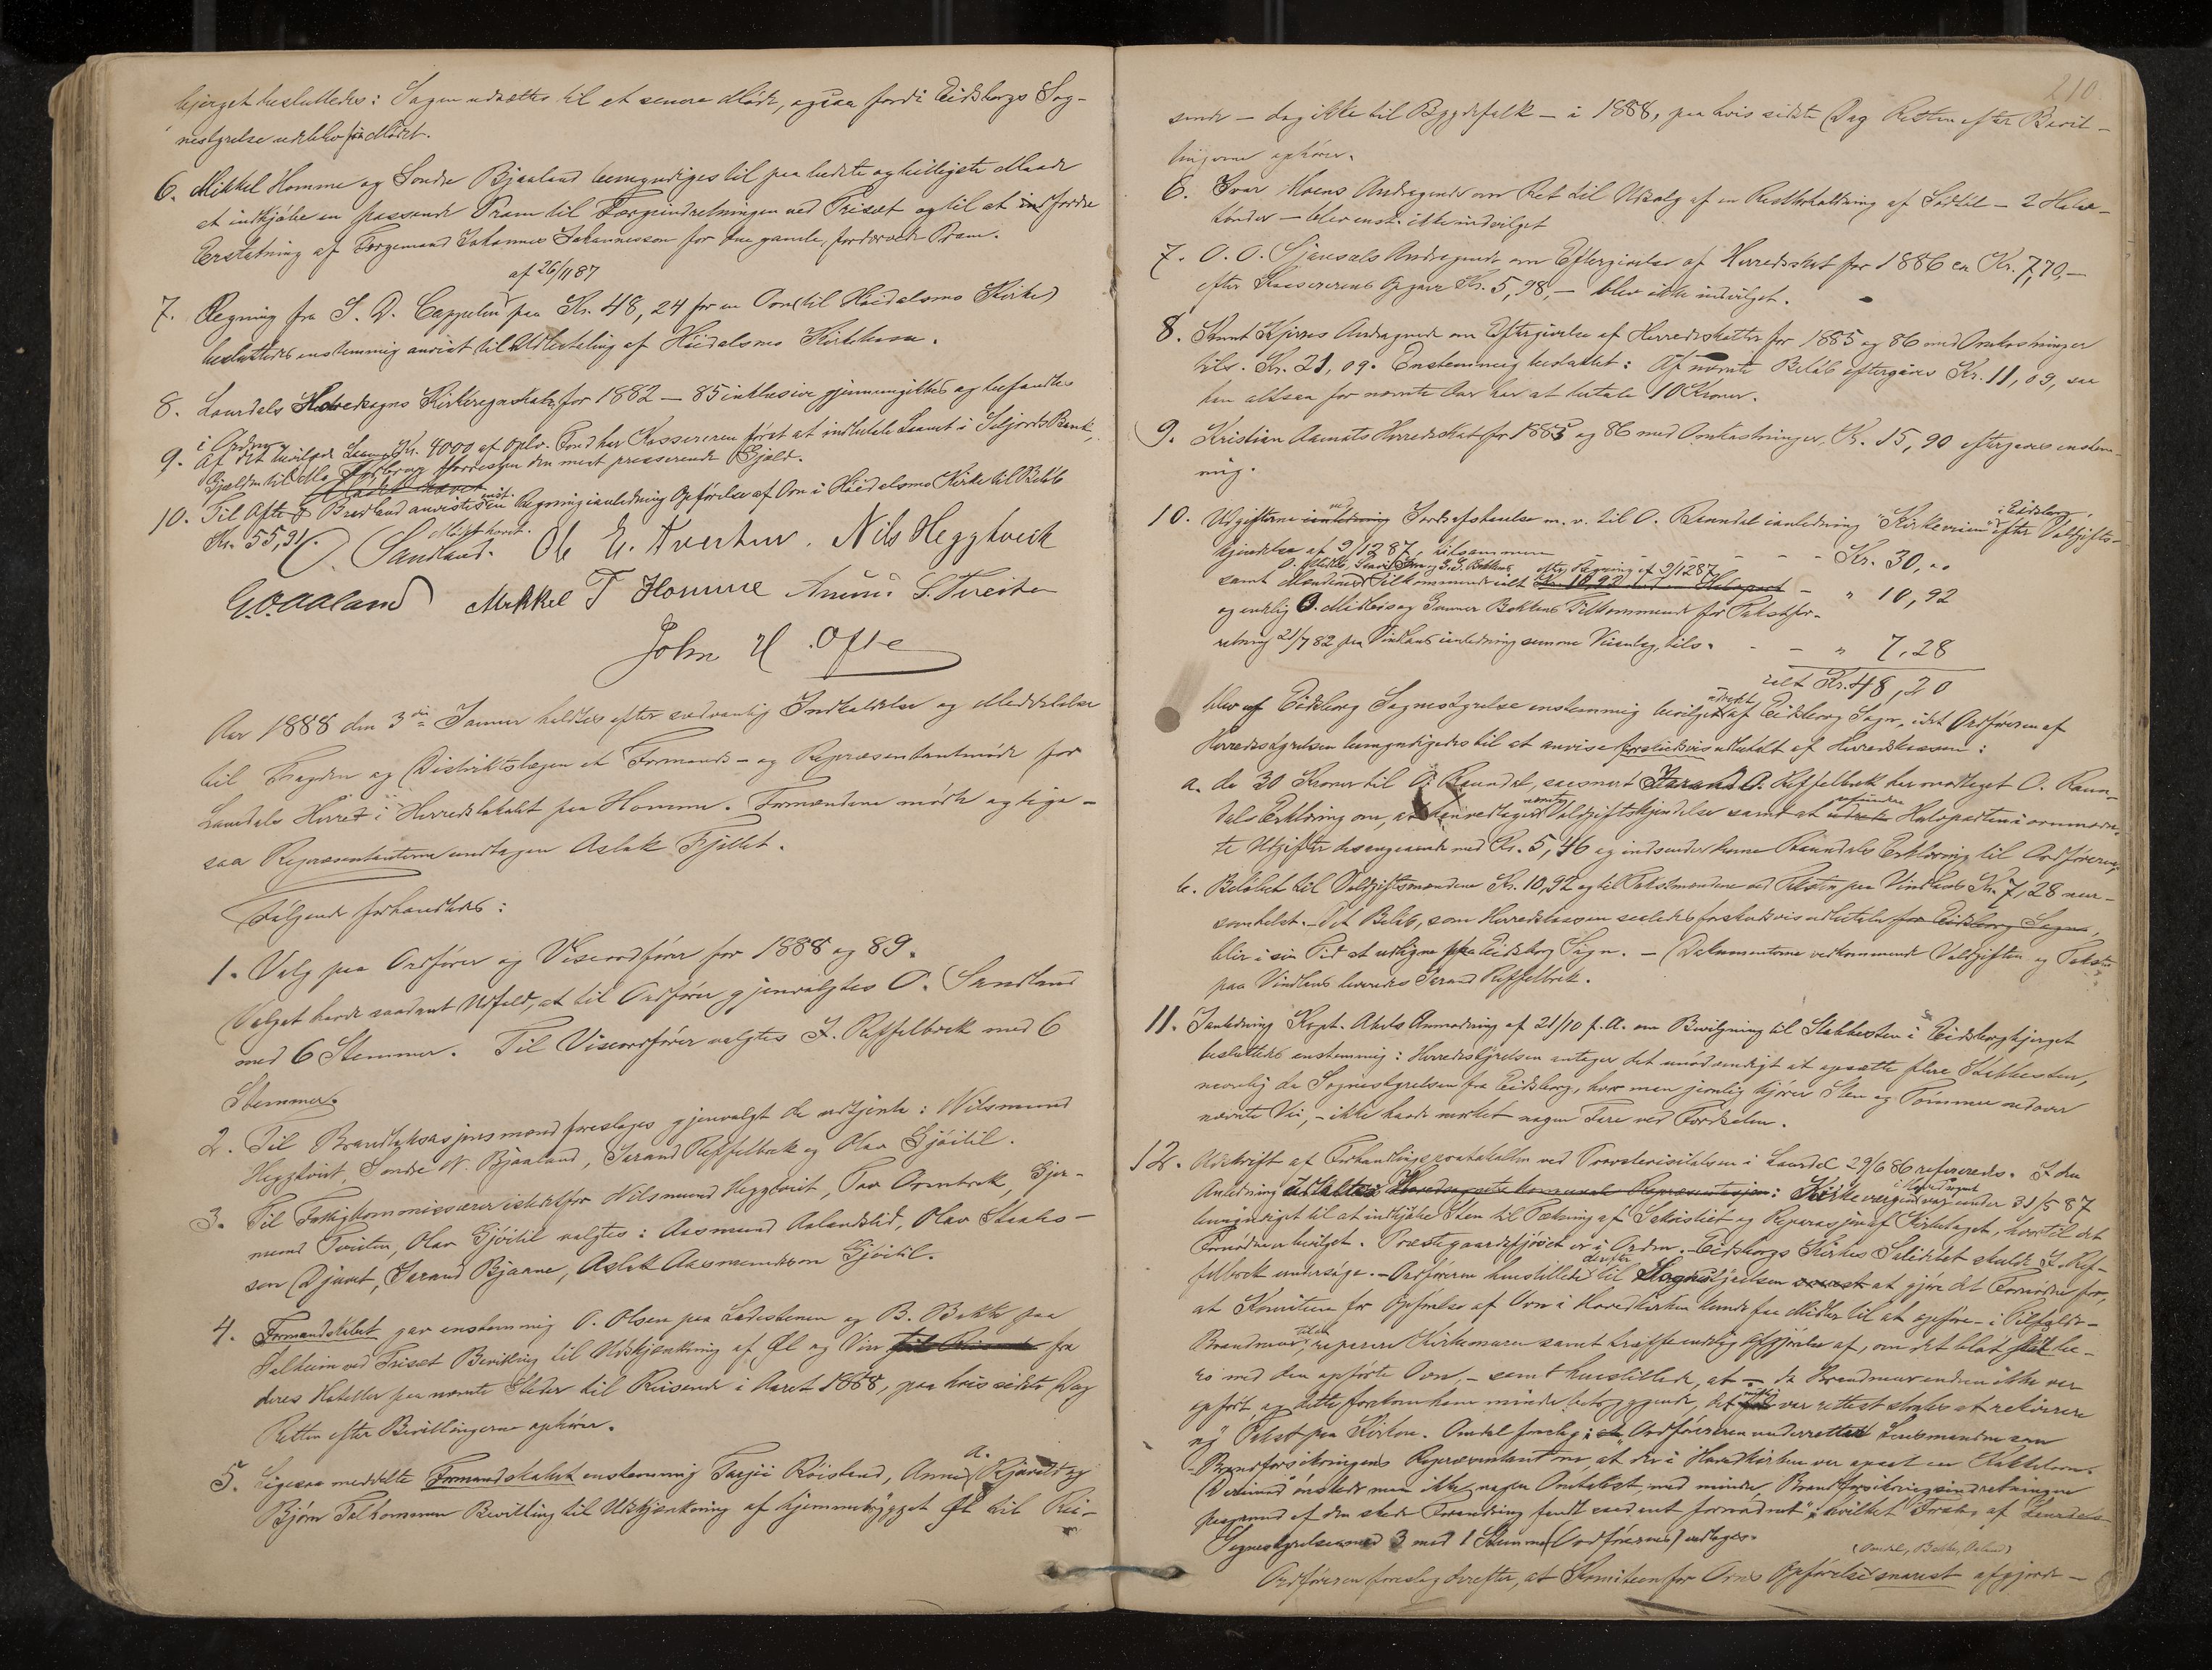 bjerget besluttedes: Sagen udsættes til et senere Møde, ogsaa fordi Eidsborgs Sog-
nestyrelse udeblev fra Mødet.
6. Mikkel Homme og Sondre Bjaaland bemyndiges til paa bedste og billigste Maade
at indkjøbe en passende Pram til Færgeindretningen ved Triset og til at indfordre
Erstatning af Færgemand Johannes Johannesson for den gamle, fordærvede Pram.
af 26/11 87
7. Regning fra S. D. Cappelen paa Kr. 48,24 for en Ovn (til Høidalsmo Kirke)
besluttedes enstemmig anvist til Udbetaling af Høidalsmo Kirkekasse.
8. Laurdals Hovedsogns Kirkeregnskaber for 1882 – 85 inklusive gjennemgikkes og befandtes
i Orden.
9. Af det bevilgede Laan Kr. 4000 af Oplv. Fond har Kassereren først at indbetale Laanet i Seljords Bank,
Gjælden til desuden den mest presserende Gjæld.
Mødet hævet
10. Til Ofte & Bredland anvistes enst. en Regning i anledning Opførelse af Ovn i Høidalsmo Kirke til Beløb
Kr. 55,91. Mødet hævet.
O. Sandland. Ole E. Tveitun. Nils Heggtveit
G. O. Aaland Mikkel T Homme Anund S. Tveiten
John H. Ofte
Aar 1888 den 3die Januar holdtes efter sædvanlig Indkaldelse og Meddelelse
til Fogden og Distriktslægen et Formands- og Repræsentantmøde for
Laurdals Herred i Herredslokalet paa Homme. Formændene mødte og lige-
saa Repræsentanterne undtagen Aslak Fjellet.
Følgende forhandledes:
1. Valg paa Ordfører og Viseordfører for 1888 og 89.
Valget havde saadant Udfald, at til Ordfører gjenvalgtes O. Sandland
med 6 Stemmer. Til Viseordfører valgtes J. Roffelbæk med 6
Stemmer.
2. Til Brandtaksasjonsmænd foreslages gjenvalgt de udtjente: Nilsmund
Heggtveit, Sondre N. Bjaaland, Jarand Roffelbæk og Olav Gjøitil.
3. Til Fattigkommissærer istedetfor Nilsmund Heggtveit, Tor Ormbrek, Gjer-
mund Tveiten, Olav Gjøitil valgtes: Aasmund Aalandslid, Olav Staals-
son Djuvet, Jarand Bjaane, Aslak Aasmundsson Gjøitil.
4. Formandskabet gav enstemmig O. Olsen paa Ladestenen og B. Bakke paa
Solheim ved Triset Bevilling til Udskjænkning af Øl og Vin fra
deres Hoteller paa nævnte Steder til Reisende i Aaret 1888, paa hvis sidste Dag
Retten efter Bevillingerne ophører.
5. Ligesaa meddelte Formandskabet enstemmig Tarjei Røisland, Anne A. og
Bjørn Bevilling til Udskjænkning af hjemmebrygget Øl til Rei-
210
sende – dog ikke til Bygdefolk – i 1888, paa hvis sidste Dag Retten efter Bevil-
lingerne ophører.
6. Ivar Moens Andragende om Ret til Udsalg af en Restbeholdning af Sødtøl – 2 Halv-
tønder – blev enst. ikke indvilget
7. O. O. Andragende om Eftergivelse af Herredsskat for 1886 ca Kr. 7,70,–
efter Kassererens Opgave Kr. 5,98, – blev ikke indvilget.
8. Knut Andragende om Eftergivelse af Herredsskatter for 1885 og 86 med Omkostninger
tils. Kr. 21,09. Enstemmig besluttet: Af nævnte Beløb eftergives Kr. 11,09, saa
han altsaa for nævnte Aar har at betale 10 Kroner.
9. Kristian Herredsskat for 1885 og 86 med Omkostninger, Kr. 15,90 eftergaves enstem-
mig.
10. Udgifterne ved Jordafstaaelse m. v. til O. Ramndal i anledning "Kirkeveien" i Eidsborg, efter Voldgifts-
kjendelse af 9/12 87, tilsammen Kr. 30,00
samt Mændenes Tilkommende ialt efter Regning af 9/12 87 – " 10,92
og endelig O. og Gunnar Bakkens Tilkommende for Takstfor-
retning 21/7 82 paa Vindlaus i anledning samme Veianlæg, tils. – – " 7,28
ialt Kr. 48,20
blev af Eidsborg Sognestyrelse enstemmig bevilget udredet af Eidsborg Sogn, idet Ordføreren af
Herredsstyrelsen bemyndigedes til at anvise forskudsvis udbetalt af Herredskassen:
a. de 30 Kroner til O. Ramndal, saasnart Jarand A. Roffelbæk har modtaget O. Ramn-
dals Erklæring om, at han vedtager nævnte Voldgiftskjendelse samt at refundere Halvparten i ommeld-
te Udgifter desangaaende med Kr. 5,46 og indsender denne Ramndals Erklæring til Ordføreren,
b. Beløbet til Voldgiftsmændene Kr. 10,92 og til Takstmændene ved Taksten paa Vindlaus Kr. 7,28 naar-
somhelst. – Det Beløb, som Herredskassen saaledes forskudsvis udbetaler for Eidsborg Sogn,
blir i sin Tid at udligne paa Eidsborg Sogn. – Dokumenterne vedkommende Voldgiften og Taksten
paa Vindlaus leveredes Jarand Roffelbæk.
11. I anledning Kapt. Abels Anmodning af 21/10 f. A. om Bevilgning til Stabbesten i Eidsborgbjerget
besluttedes enstemmig: Herredsstyrelsen antager det unødvendigt at opsætte flere Stabbesten,
navnlig da Sognestyrelsen fra Eidsborg, hvor man jevnlig kjører Sten og Tømmer nedover
nævnte Vei, – ikke havde mærket nogen Fare ved Færdselen.
12. Udskrift af Forhandlingsprotokollen ved Provstevisitatsen i Laurdal 29/6 86 refereredes. I den
Anledning udtaltes: Kirkevergen i Hovedsognet var under 31/5 87
bemyndiget til at indkjøbe Sten til Tækning af Sakristiet og Reparasjon af Kirketaget, hvortil det
Fornødne er bevilget. Præstegaardsfjøset er i Orden. – Eidsborgs Kirkes Soliditet skulde J. Rof-
felbæk undersøge. – Ordføreren henstillede derefter til Sognestyrelsen at gjøre det Fornødne for,
at Komiteen for Opførelse af Ovn i Hovedkirken kunde faa Midler til at opføre – i Tilfælde –
Brandmur, til at reparere Kirkemuren samt træffe endelig Afgjørelse af, om det blot skal be-
ro med den opførte Ovn, – samt henstillede, at – da Brandmur endnu ikke var
opført, og dette forekom ham mindre betryggende, det var rettest straks at rekvirere
ny Takst paa Kirken. Omdal foreslog: at "Ordføreren underretter Lensmanden som
Brandforsikringens Repræsentant om, at der i Hovedkirken var opsat en Kakkelovn.
Derimod ønskede man ikke nogen Omtakst, med mindre Brandforsikringsindretningen
paagrund af den skede Forandring fandt saadant fornødent", hvilket Forslag af Laurdals
Sognestyrelse med 3 mod 1 Stemme (Ordførerens) vedtoges.
(Omdal, Bakke, Aaland)
Ordføreren foreslog derefter, at Komiteen for Ovns Opførelse snarest afgjorde –